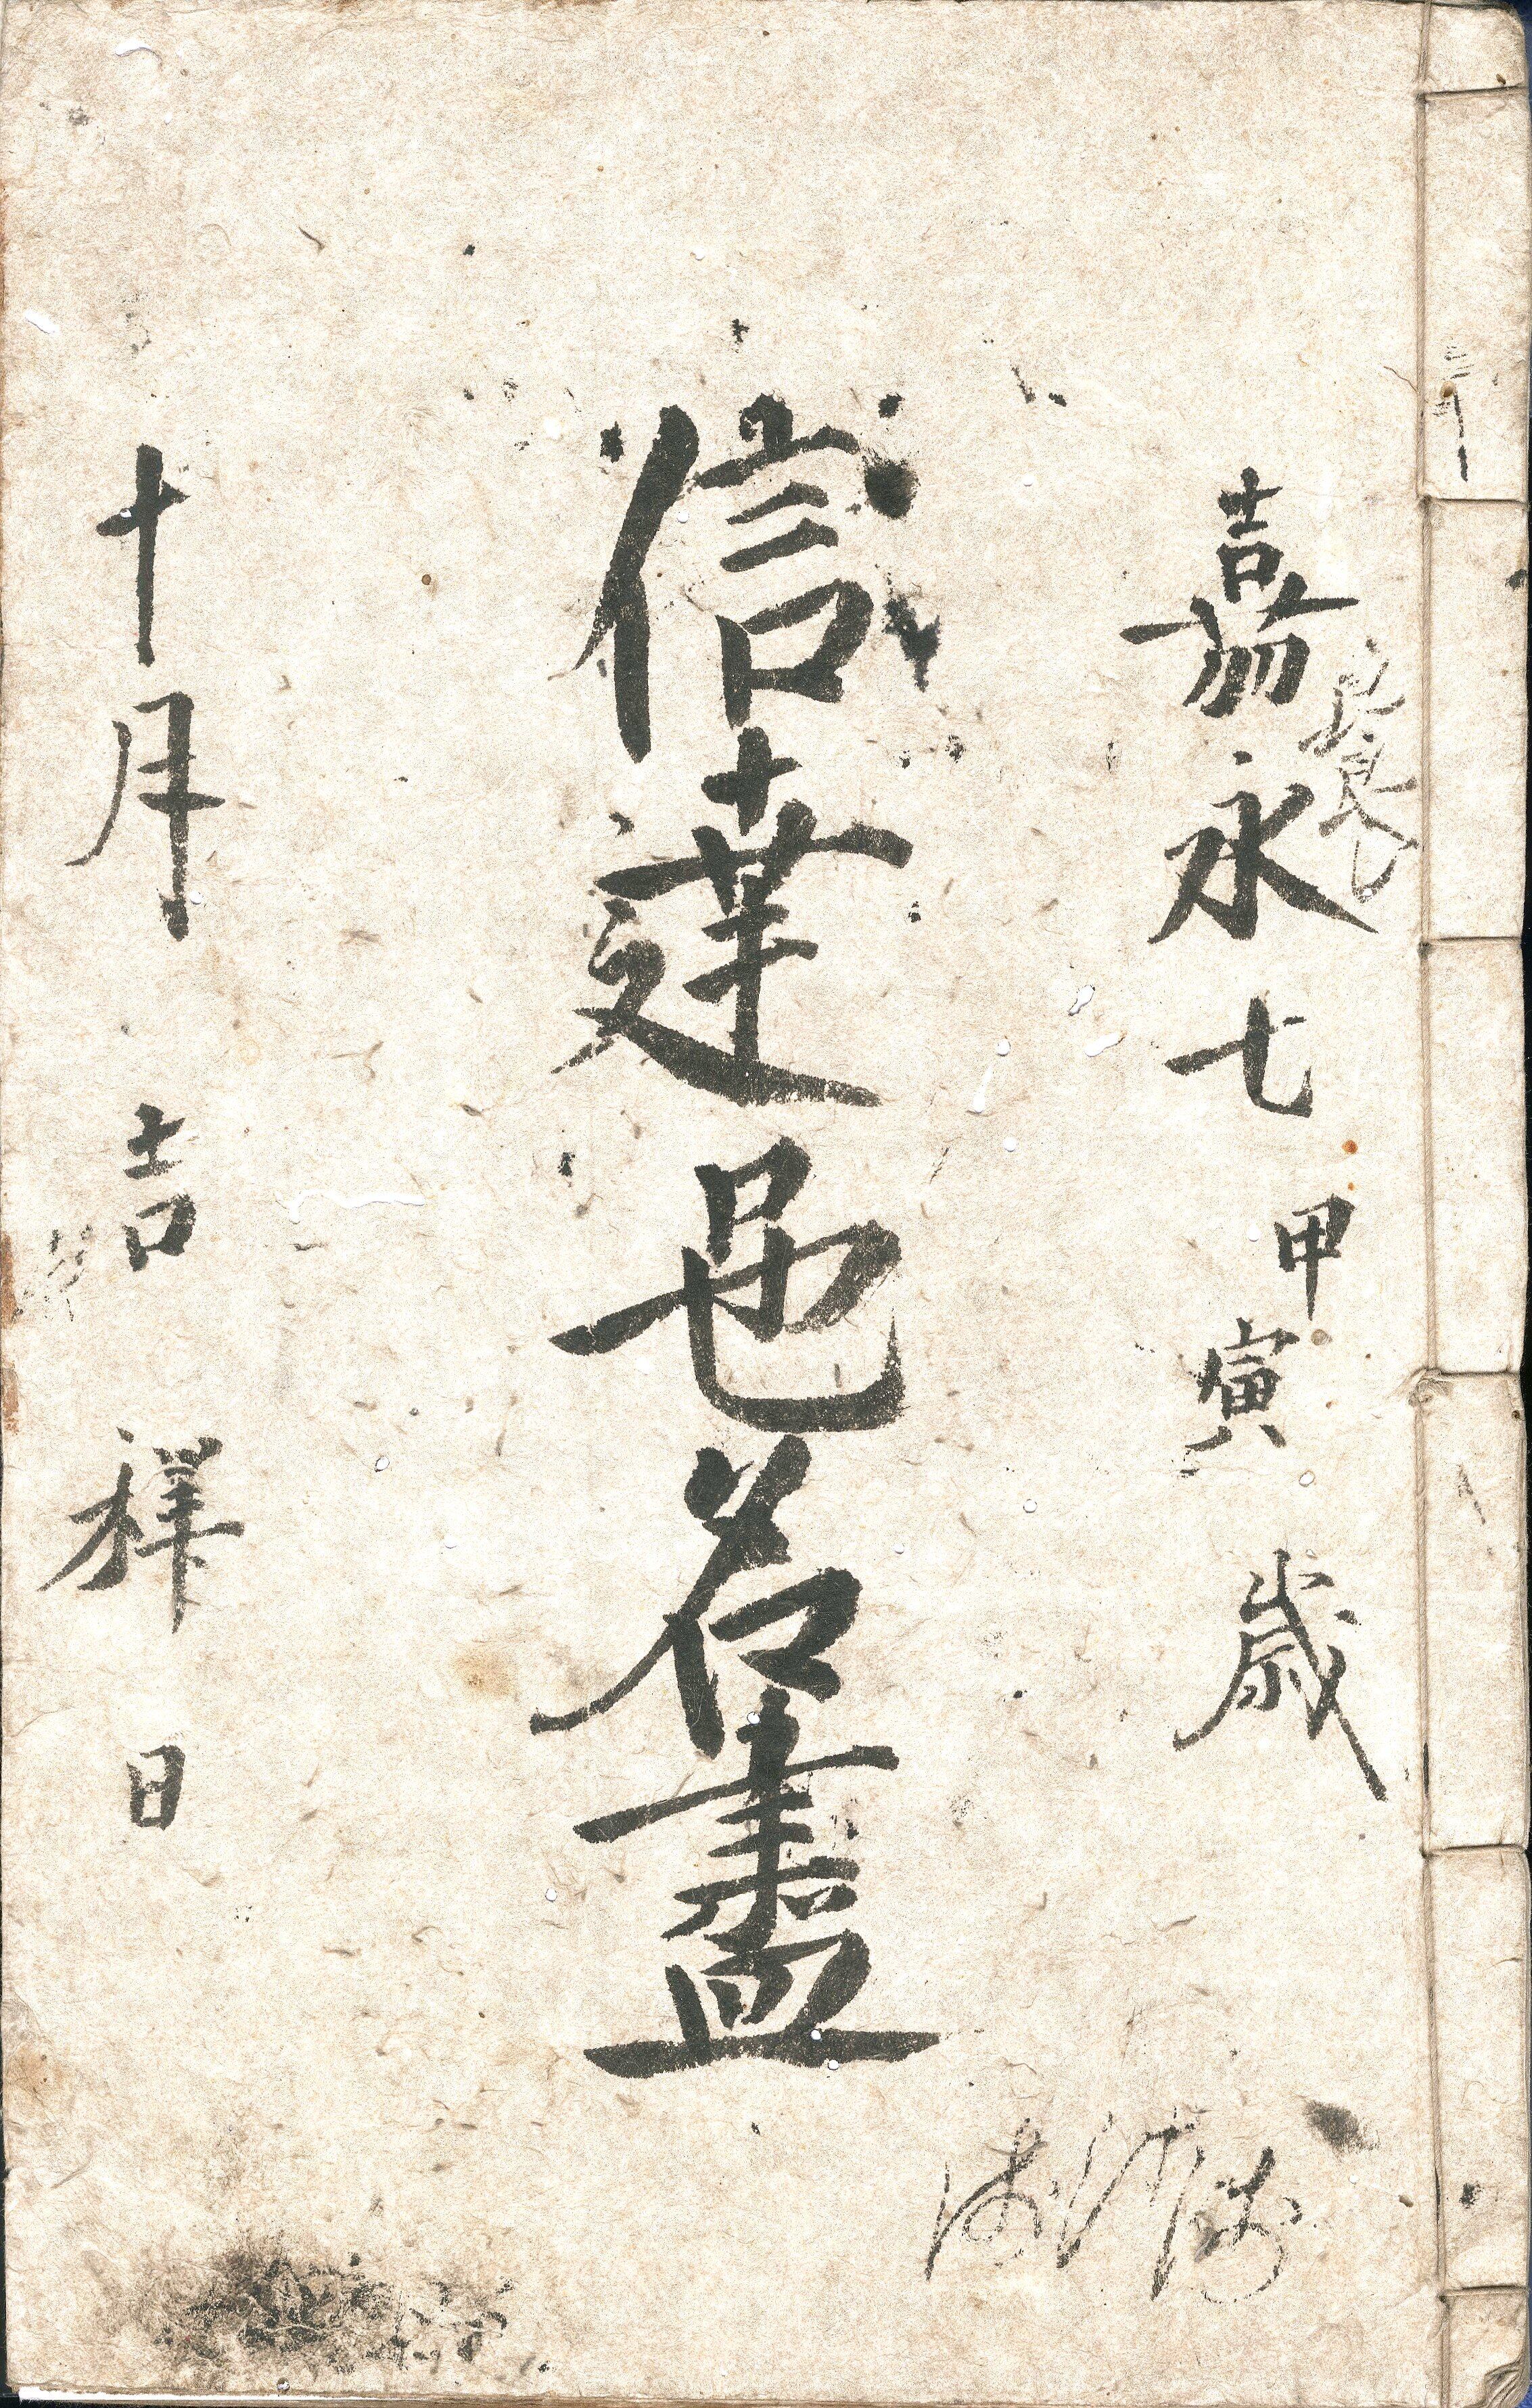 嘉永七甲寅歳
信達邑名盡
十月吉祥日